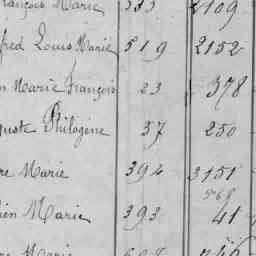 François Marie 2109
fred Louis Marie 519 2152
n Marie François 23 378
guste Philogène 37 250
re Marie 394 3151
569
ien Marie 393 41
Marie